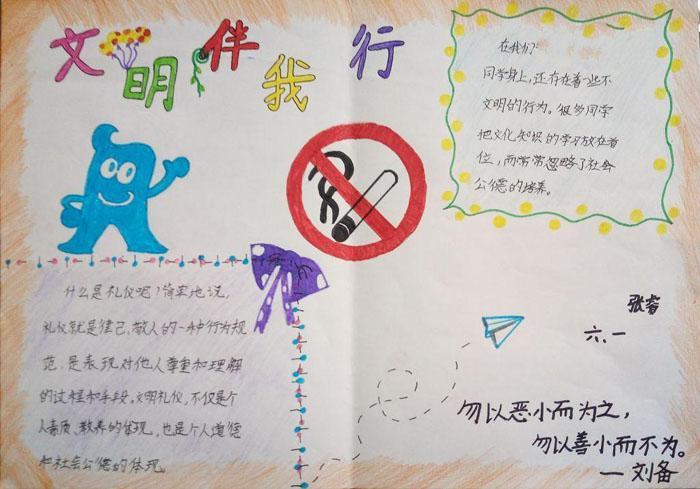 文明伴我行
在我们
同学身上，还存在着一些不
文明的行为。很多同学
把文化知识的学习放在首
位，而常常忽略了社会
公德的培养。
什么是礼仪呢？简单地说，
礼仪就是律己、敬人的一种行为规
范，是表现对他人尊重和理解
的过程和手段。文明礼仪，不仅是个
人素质、教养的体现，也是个人道德
和社会公德的体现。
张睿
六、一
勿以恶小而为之，
勿以善小而不为。
—刘备